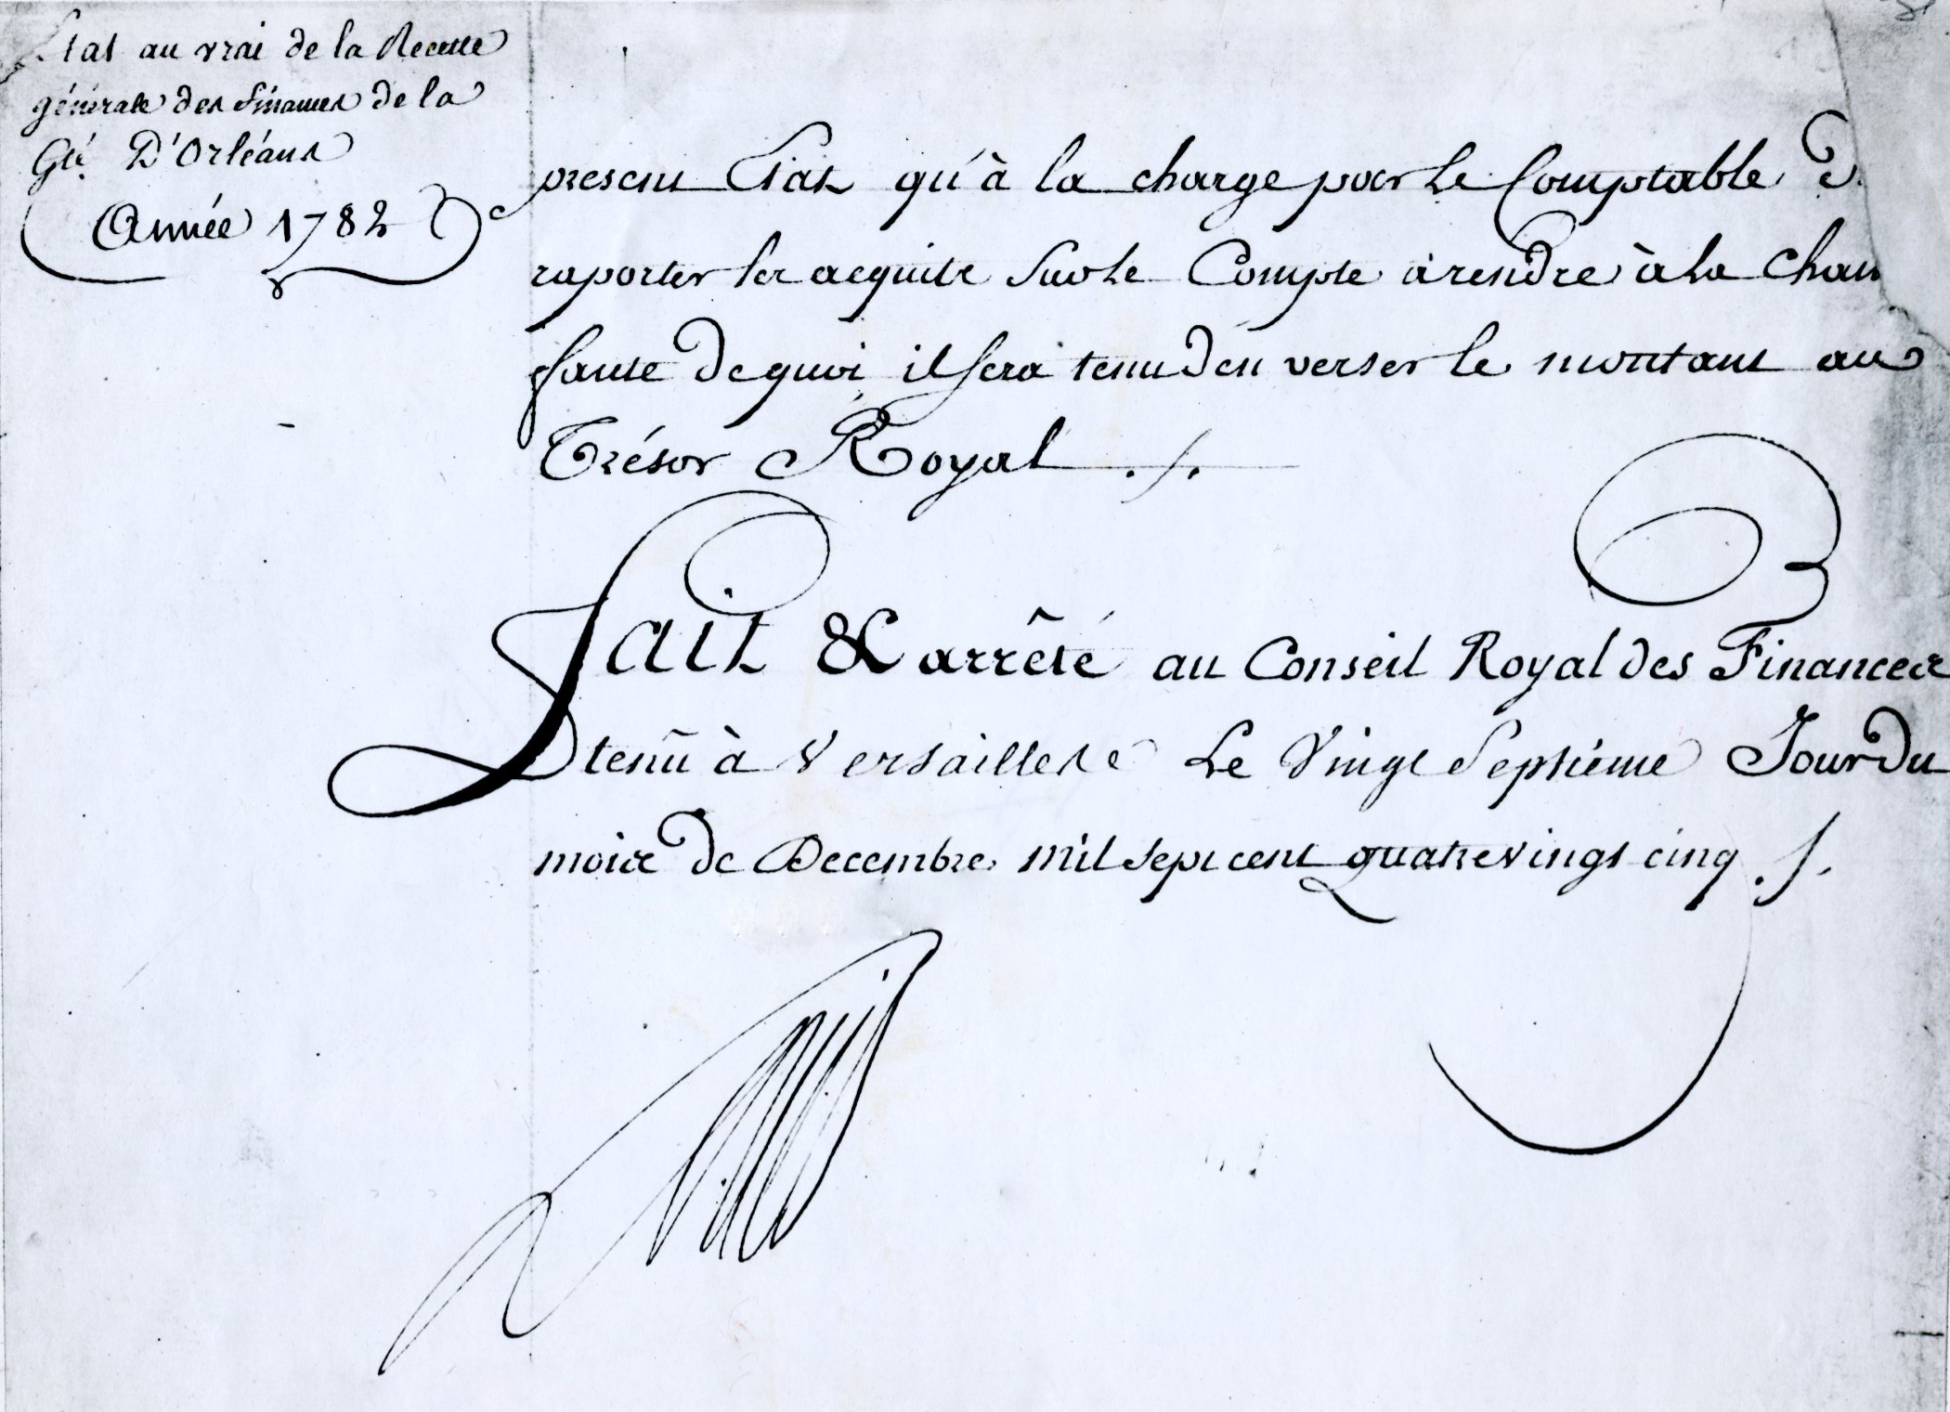 Etat au vrai de la Recette
générale des finances de la
Gté. D'Orléans
Année 1782
present Etat qu'à la charge par le Comptable de
raporter les acquits sur le Compte à rendre à la Cham
faute de quoi il sera tenu d'en verser le montant au
Trésor Royal ./.
Fait & arrêté au Conseil Royal des Finances
tenû à Versailles Le Vingt Septiéme Jour du
mois de Decembre mil sept cent quatre vingt cinq ./.